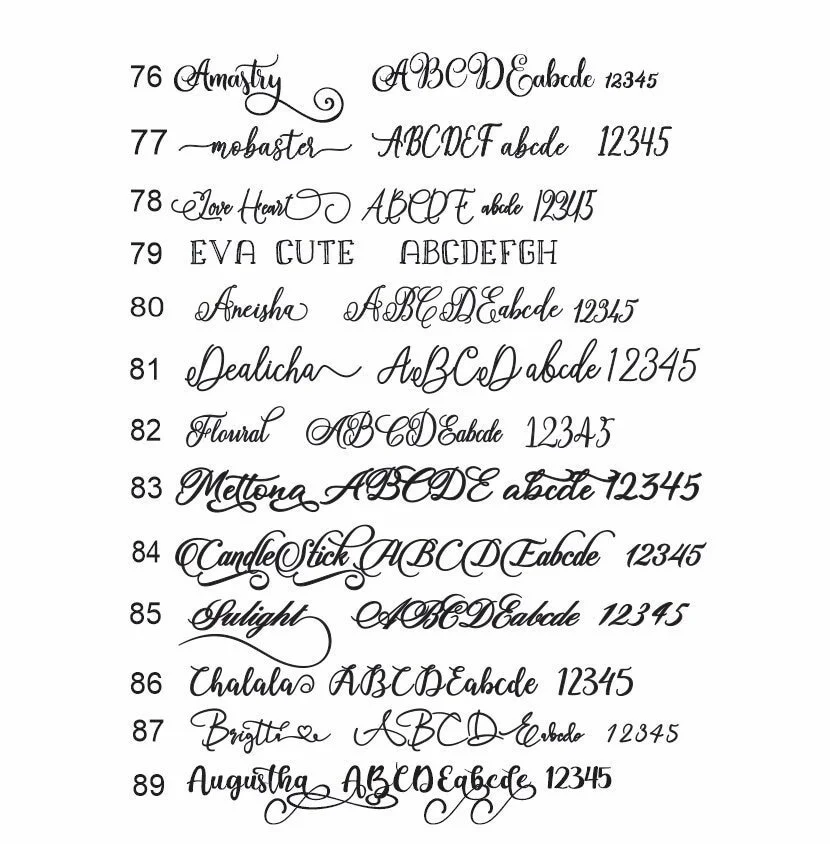 76 Amastry ABCDEabcde 12345
77 mobaster ABCDEF abcde 12345
78 Love Heart ABCDE abcde 12345
79 EVA CUTE ABCDEFGH
80 Aneisha ABCDEabcde 12345
81 Dealicha ABCD abcde 12345
82 Floural ABCDEabcde 12345
83 Mettona ABCDE abcde 12345
84 CandleStick ABCDEabcde 12345
85 Sulight ABCDEabcde 12345
86 Chalala ABCDEabcde 12345
87 Brigtti ABCD Eabcde 12345
89 Augustha ABCDEabcde 12345